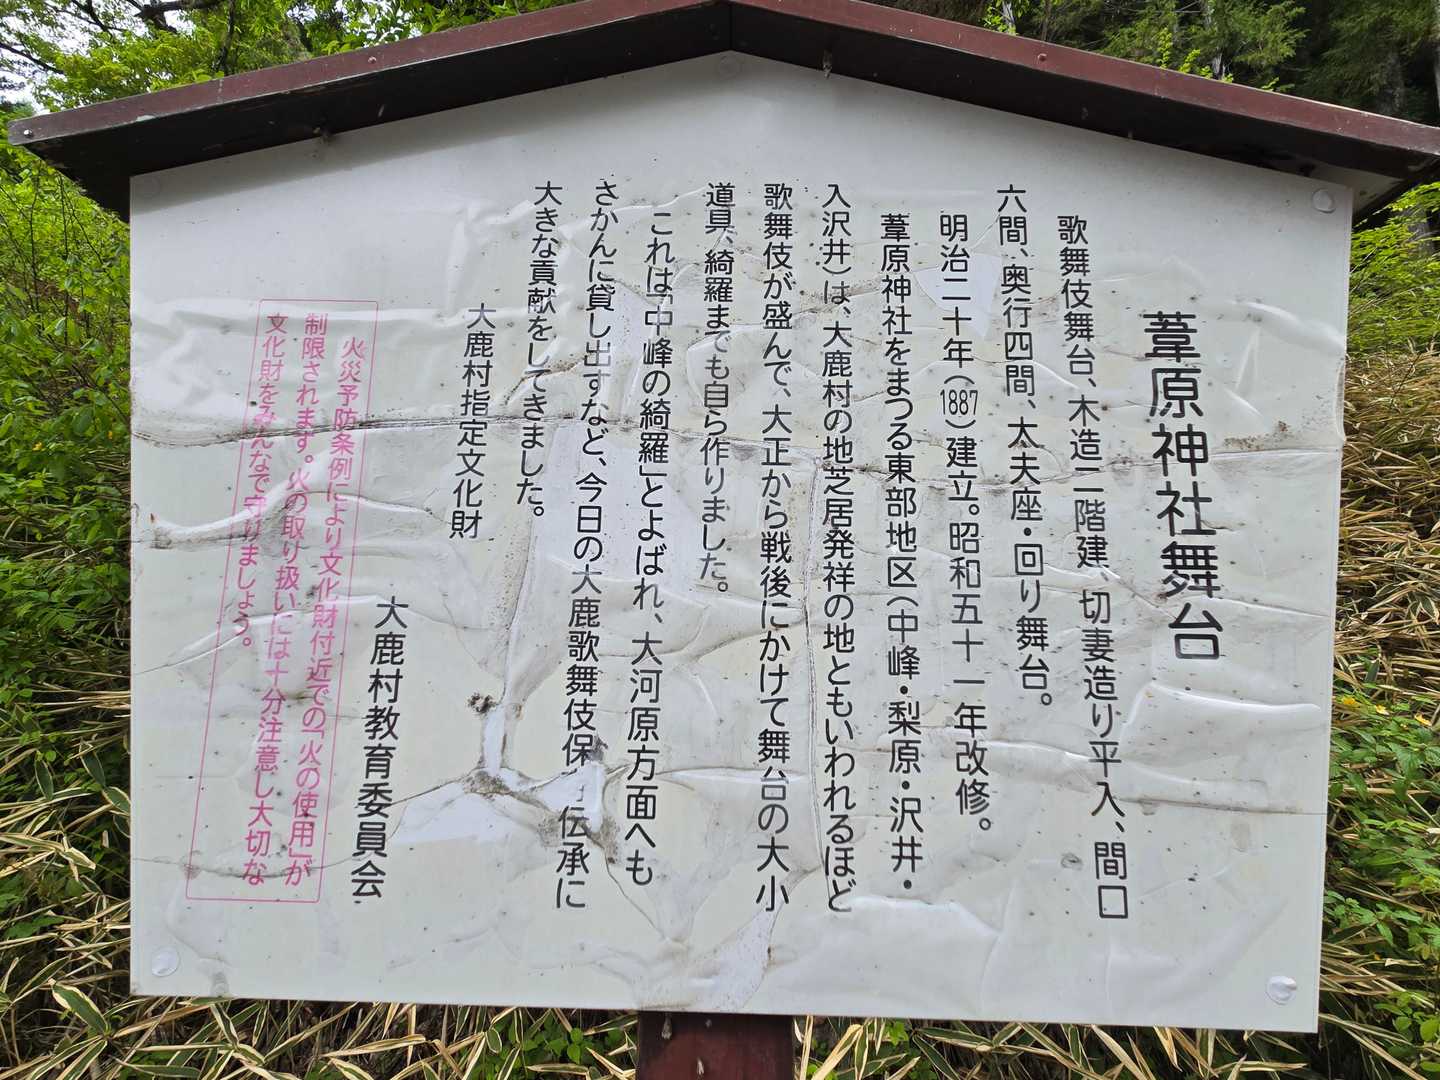 葦原神社舞台
歌舞伎舞台、木造二階建、切妻造り平入、間口
六間、奥行四間、太夫座・回り舞台。
明治二十年(1887)建立。昭和五十一年改修。
葦原神社をまつる東部地区(中峰・梨原・沢井・
入沢井)は、大鹿村の地芝居発祥の地ともいわれるほど
歌舞伎が盛んで、大正から戦後にかけて舞台の大小
道具、綺羅までも自ら作りました。
これは「中峰の綺羅」とよばれ、大河原方面へも
さかんに貸し出すなど、今日の大鹿歌舞伎保 伝承に
大きな貢献をしてきました。
大鹿村指定文化財
大鹿村教育委員会
火災予防条例により文化財付近での「火の使用」が
制限されます。火の取り扱いには十分注意し大切な
文化財をみんなで守りましょう。